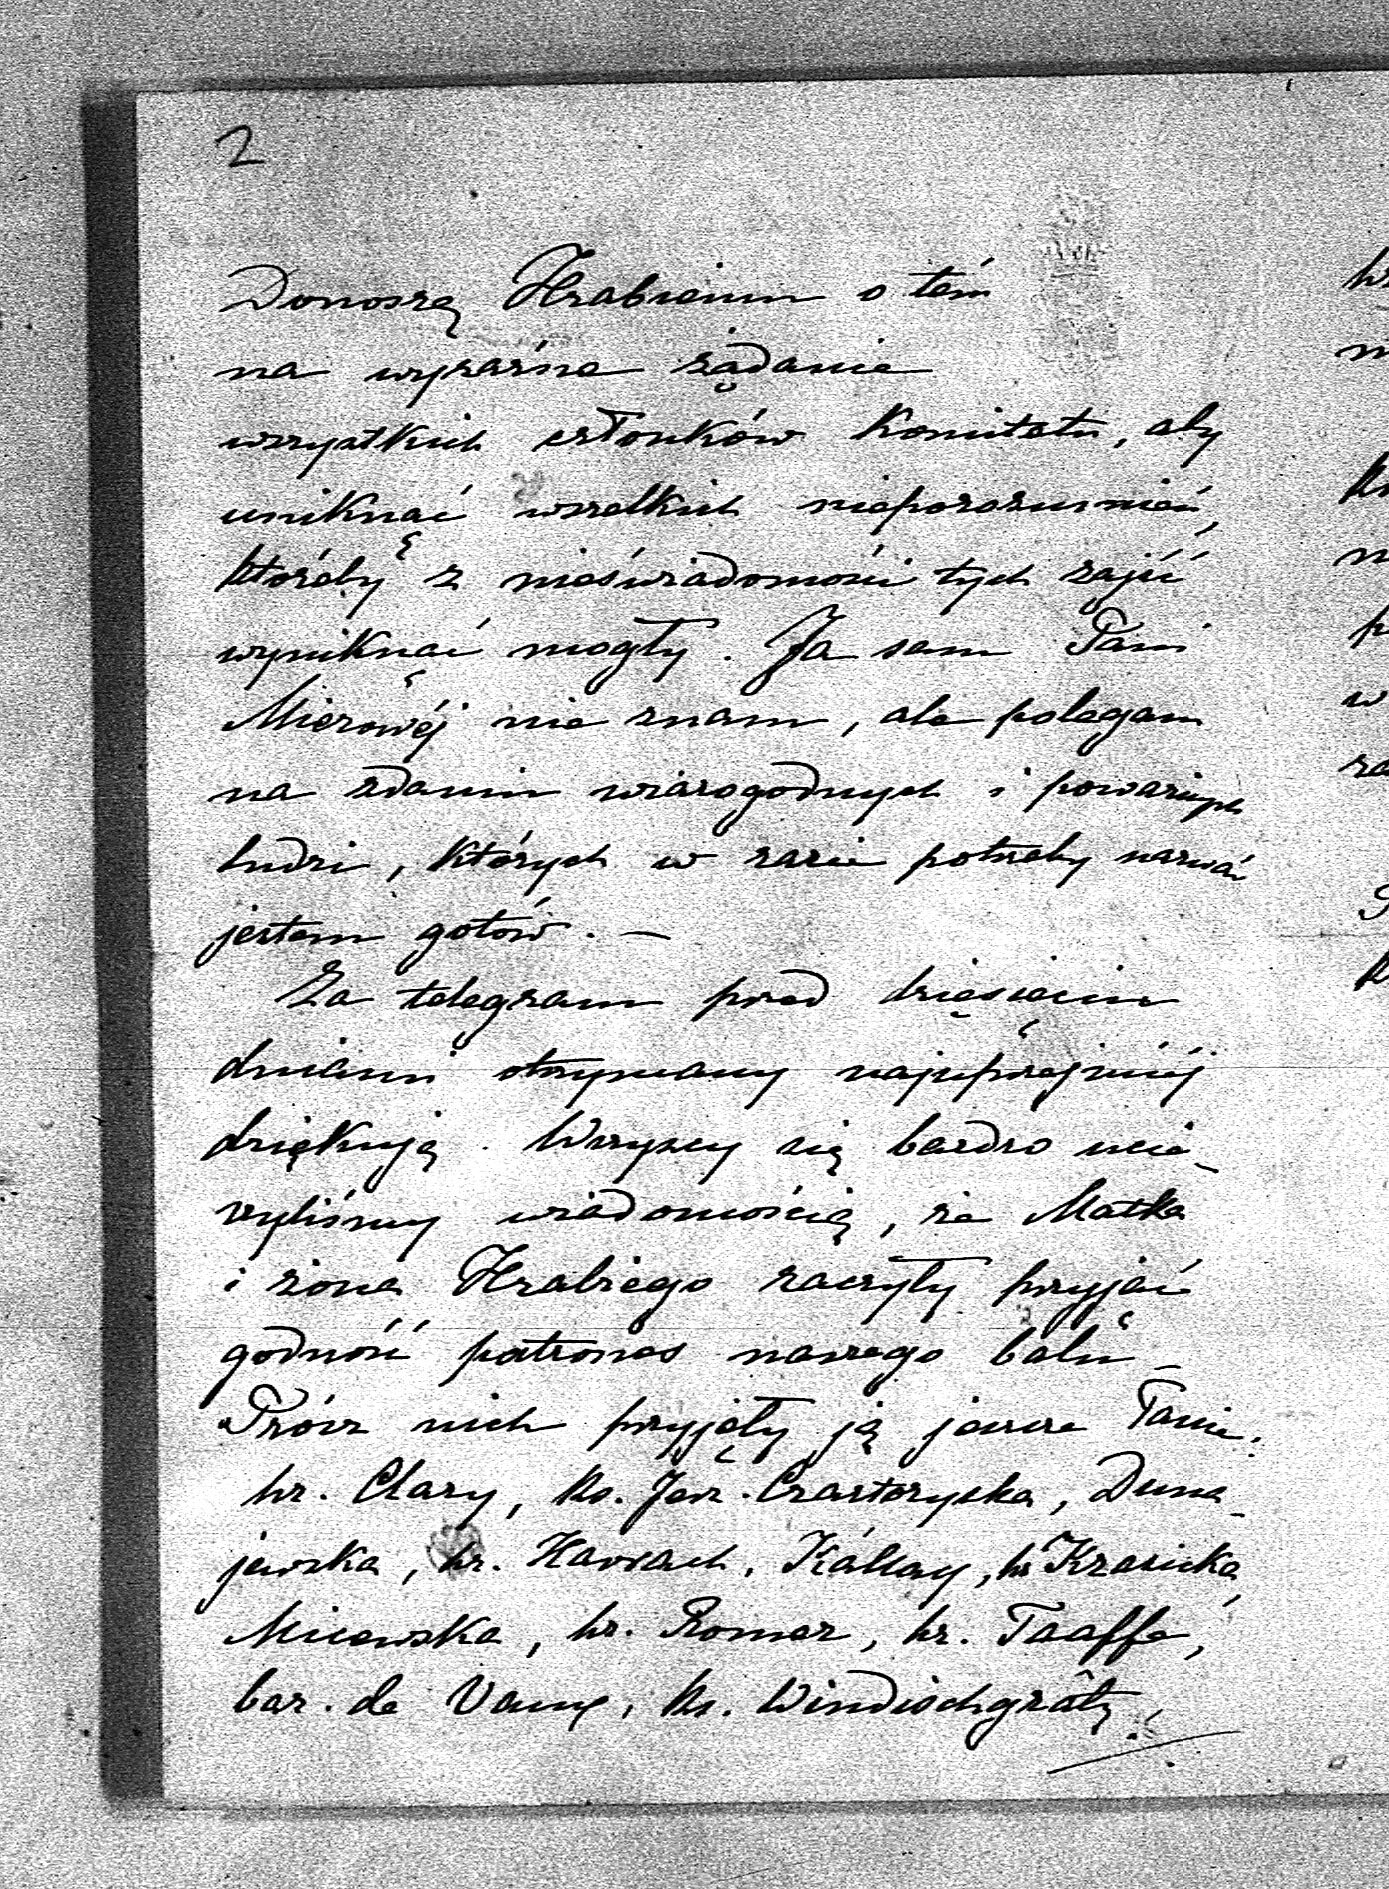 2
Donoszę Hrabiemu o tém
na wyraźne żądanie
wszystkich członków Komitetu, aby
uniknąć wszelkich nieporozumień,
któreby z nieświadomości tych zajść
wyniknąć mogły. Ja sam Pani
Mierowéj nie znam, ale polegam
na zdaniu wiarogodnych i poważnych
ludzi, których w razie potrzeby nazwać
jestem gotów. —
Za telegram przed dziesięcim
dniami otrzymany najuprzejmiéj
dziękuję. Wszyscy się bardzo ucie-
szyliśmy wiadomością, że Matka
i żona Hrabiego raczyły przyjąć
godność patrones naszego balu –
Prócz nich przyjęły ją jeszcze Panie:
hr. Clary, ks. Jerz. Czartoryska, Duna-
jewska, hr. Harrach, Kállay, hr Krasicka,
Milewska, hr. Romer, hr. Taaffe,
bar. de Vaux, ks. Windischgrätz.